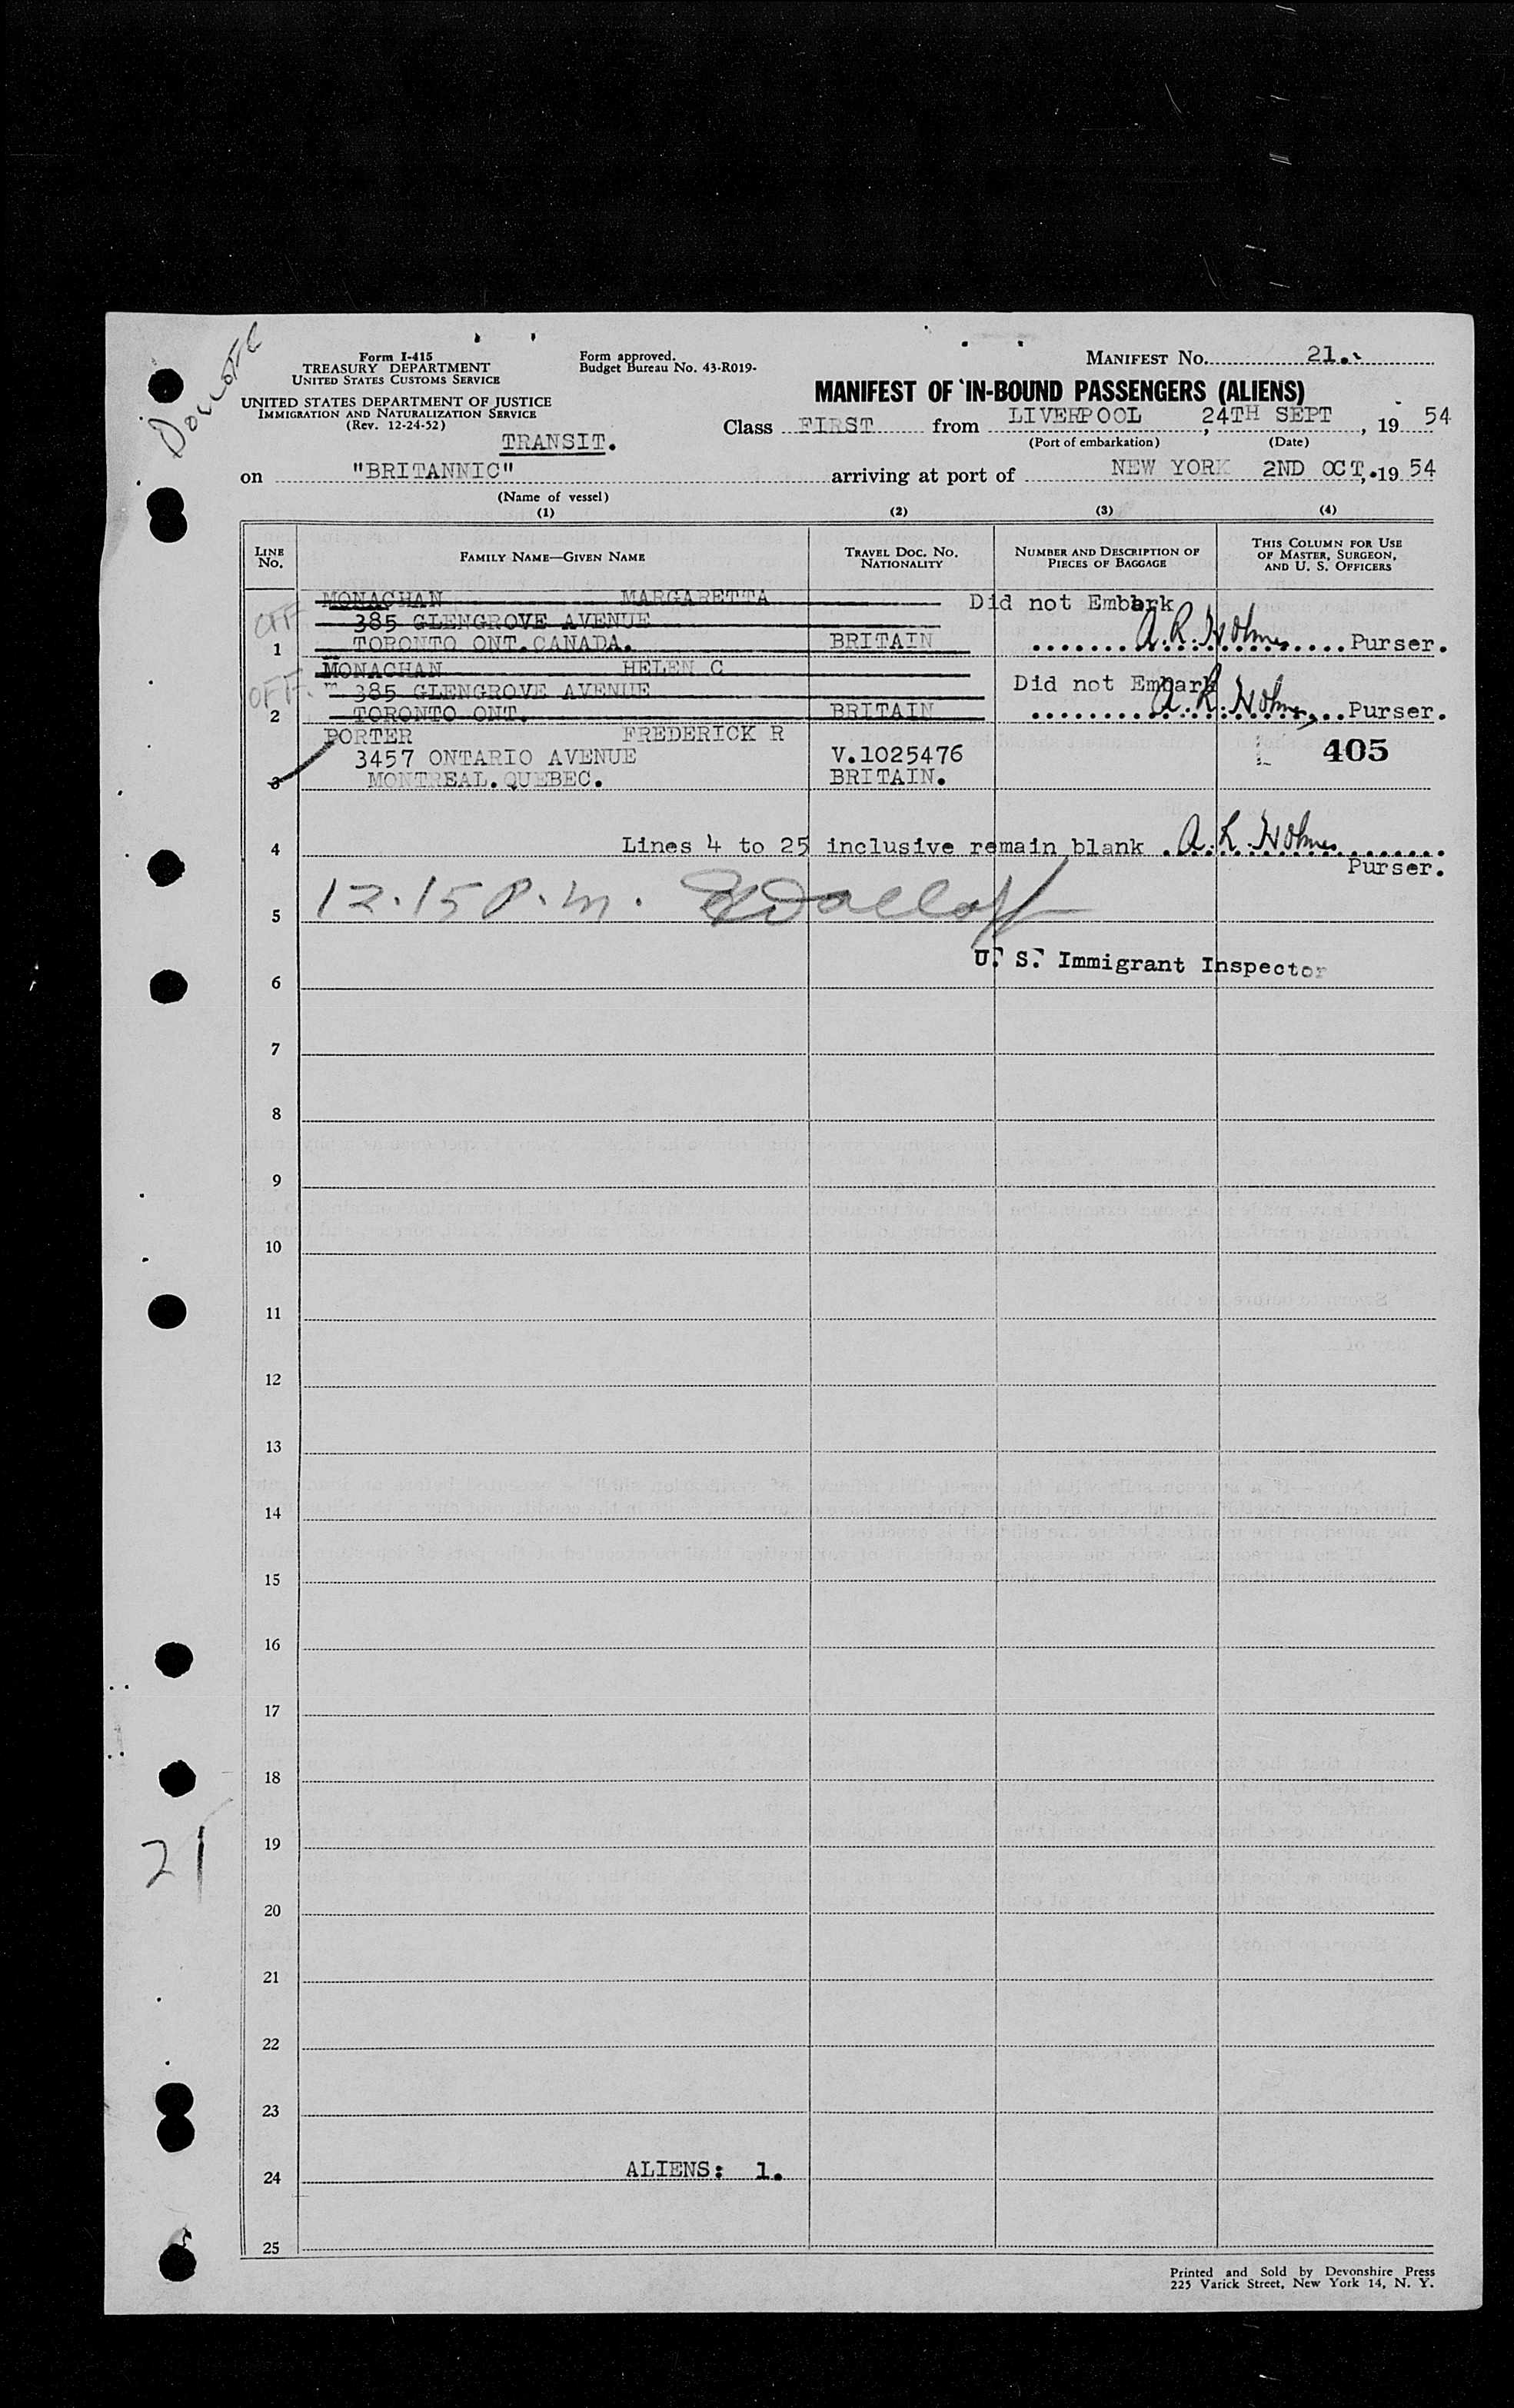 Form I-415
TREASURY DEPARTMENT
UNITED STATES CUSTOMS SERVICE
UNITED STATES DEPARTMENT OF JUSTICE
IMMIGRATION AND NATURALIZATION SERVICE
(Rev. 12-24-52)
Form approved.
Budget Bureau No. 43-R019-
MANIFEST NO. 21.
MANIFEST OF IN-BOUND PASSENGERS (ALIENS)
Class FIRST from LIVERPOOL, 24TH SEPT, 19 54
(Port of embarkation) (Date)
TRANSIT.
on "BRITANNIC" arriving at port of NEW YORK 2ND OCT, 19 54
(Name of vessel)
(1) (2) (3) (4)
LINE NO. FAMILY NAME—GIVEN NAME TRAVEL DOC. NO. NATIONALITY NUMBER AND DESCRIPTION OF PIECES OF BAGGAGE THIS COLUMN FOR USE OF MASTER, SURGEON, AND U. S. OFFICERS
MONACHAN MARGARETTA Did not Embark
OFF 385 GLENGROVE AVENUE
1 TORONTO ONT. CANADA. BRITAIN A.R. Holmes Purser.
MONACHAN HELEN C
OFF. 385 GLENGROVE AVENUE Did not Embark
2 TORONTO ONT. BRITAIN A.R. Holmes Purser.
PORTER FREDERICK R
3457 ONTARIO AVENUE V.1025476 405
3 MONTREAL.QUEBEC. BRITAIN.
4 Lines 4 to 25 inclusive remain blank A.R. Holmes
Purser.
5 12.15 P.m.
U. S. Immigrant Inspector
6
7
8
9
10
11
12
13
14
15
16
17
18
19
21
20
21
22
23
24 ALIENS: 1.
25
Printed and Sold by Devonshire Press
225 Varick Street, New York 14, N. Y.